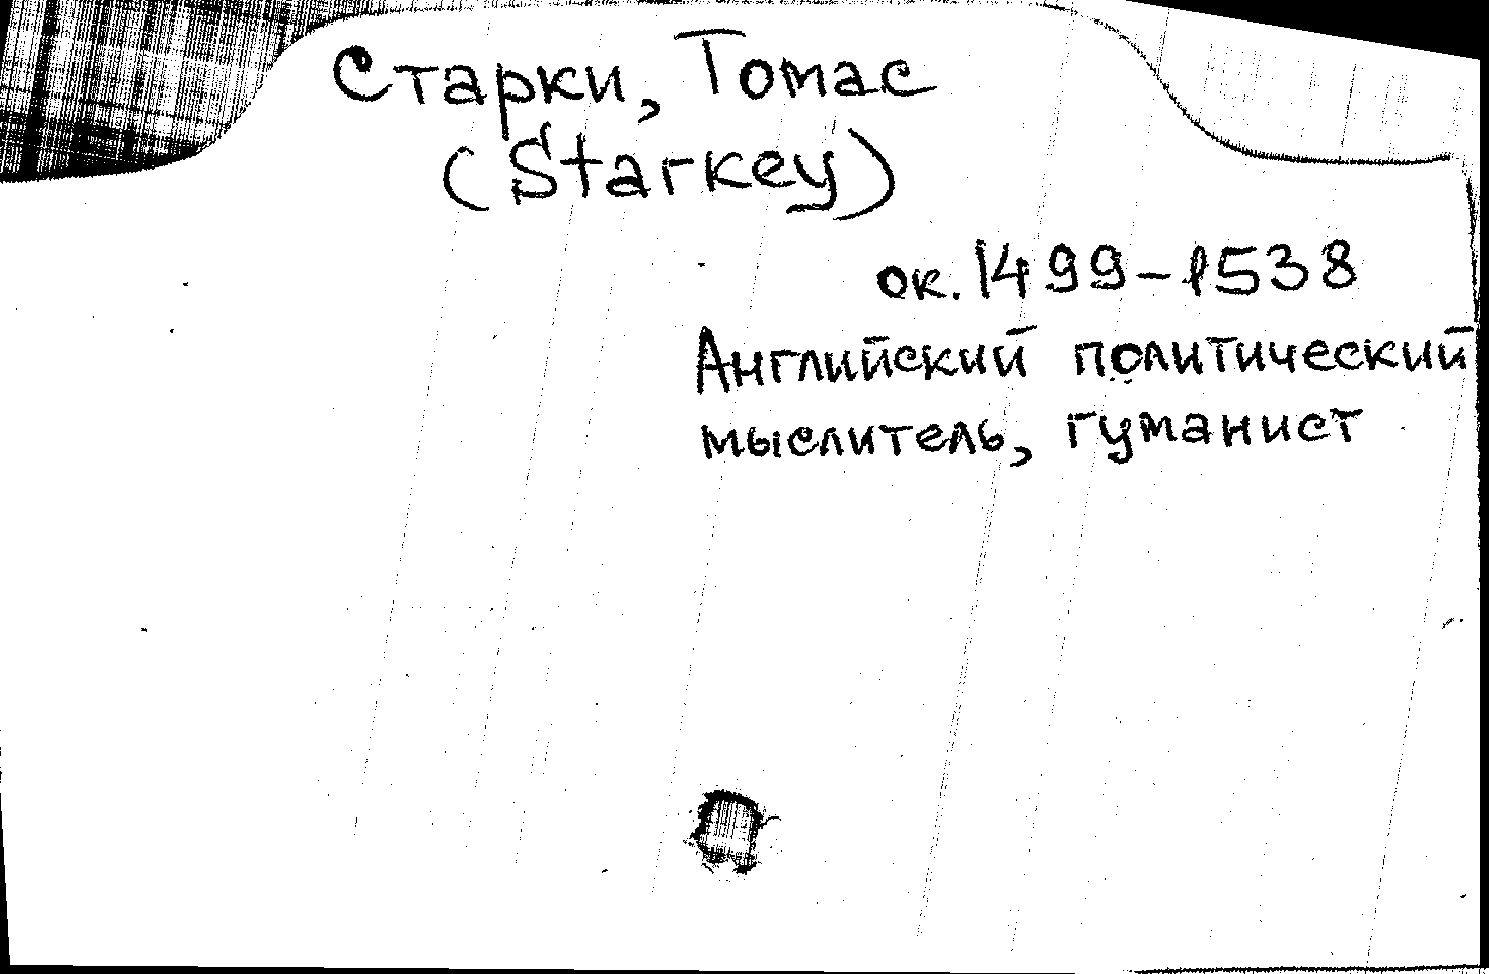 Старки, Томас
(Starkey)
ок. 1499-1538
Английский политический
мыслитель, гуманист